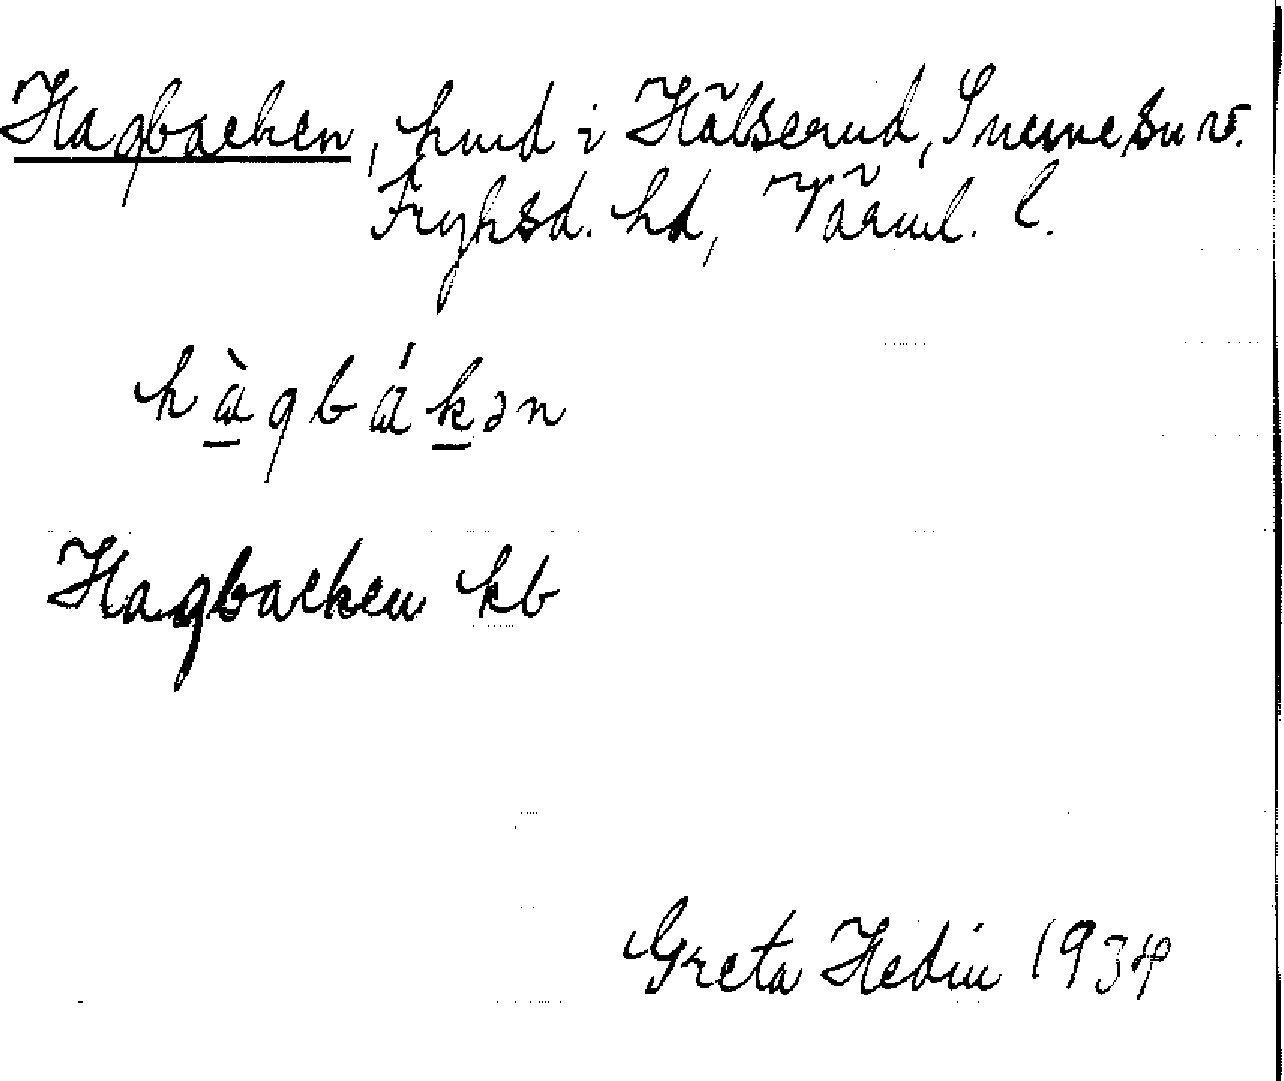 Hagbacken, hmd i Hälserud, Sunne sn v.
Fryksd. hd, Värml. l.
hàgbákən
Hagbacken kb
Greta Hedin 1934